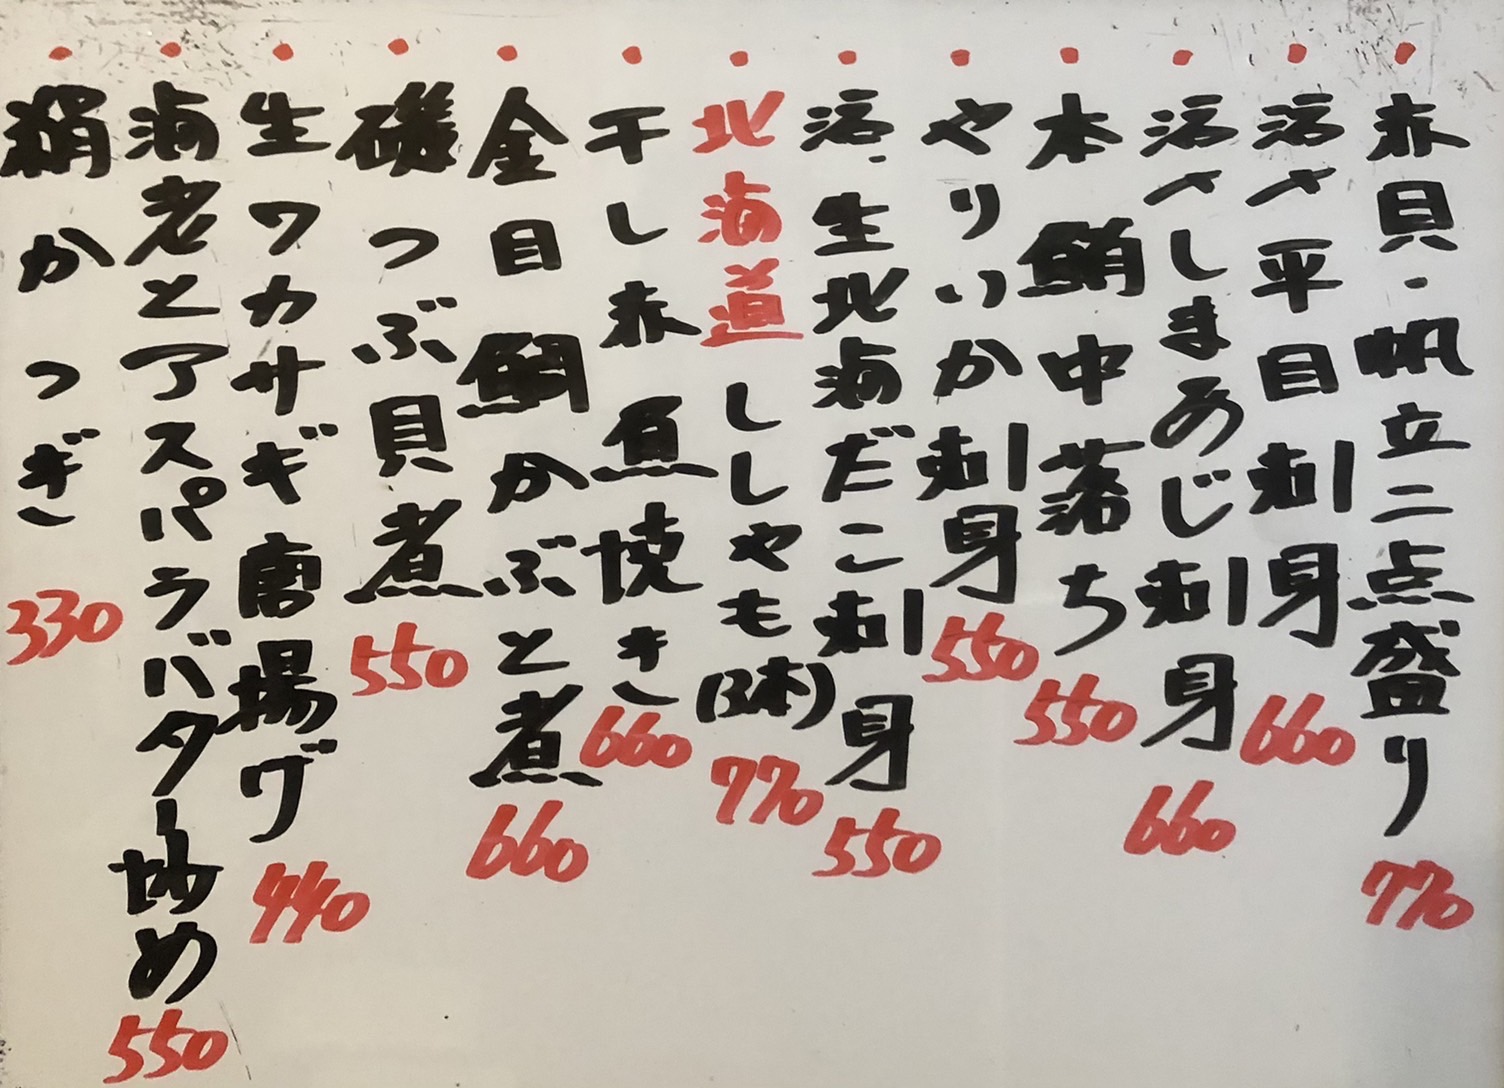 赤貝・帆立二点盛り 770
活〆平目刺身 660
活〆しまあじ刺身 660
本鮪中落ち 550
やりいか刺身 550
活・生北海だこ刺身 550
北海道ししゃも(3本) 770
干し赤魚焼き 660
金目鯛かぶと煮 660
磯つぶ貝煮 550
生ワカサギ唐揚ゲ 440
海老とアスパラバター炒め 550
絹かつぎ 330